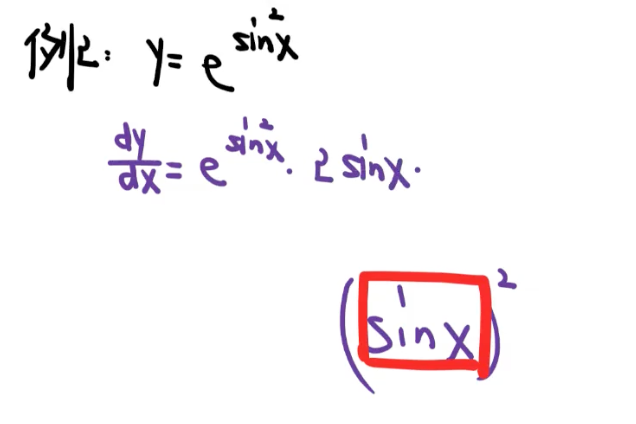 例2: y = e^{sin²x}
dy/dx = e^{sin²x} · 2 sinx ·
(sinx)²